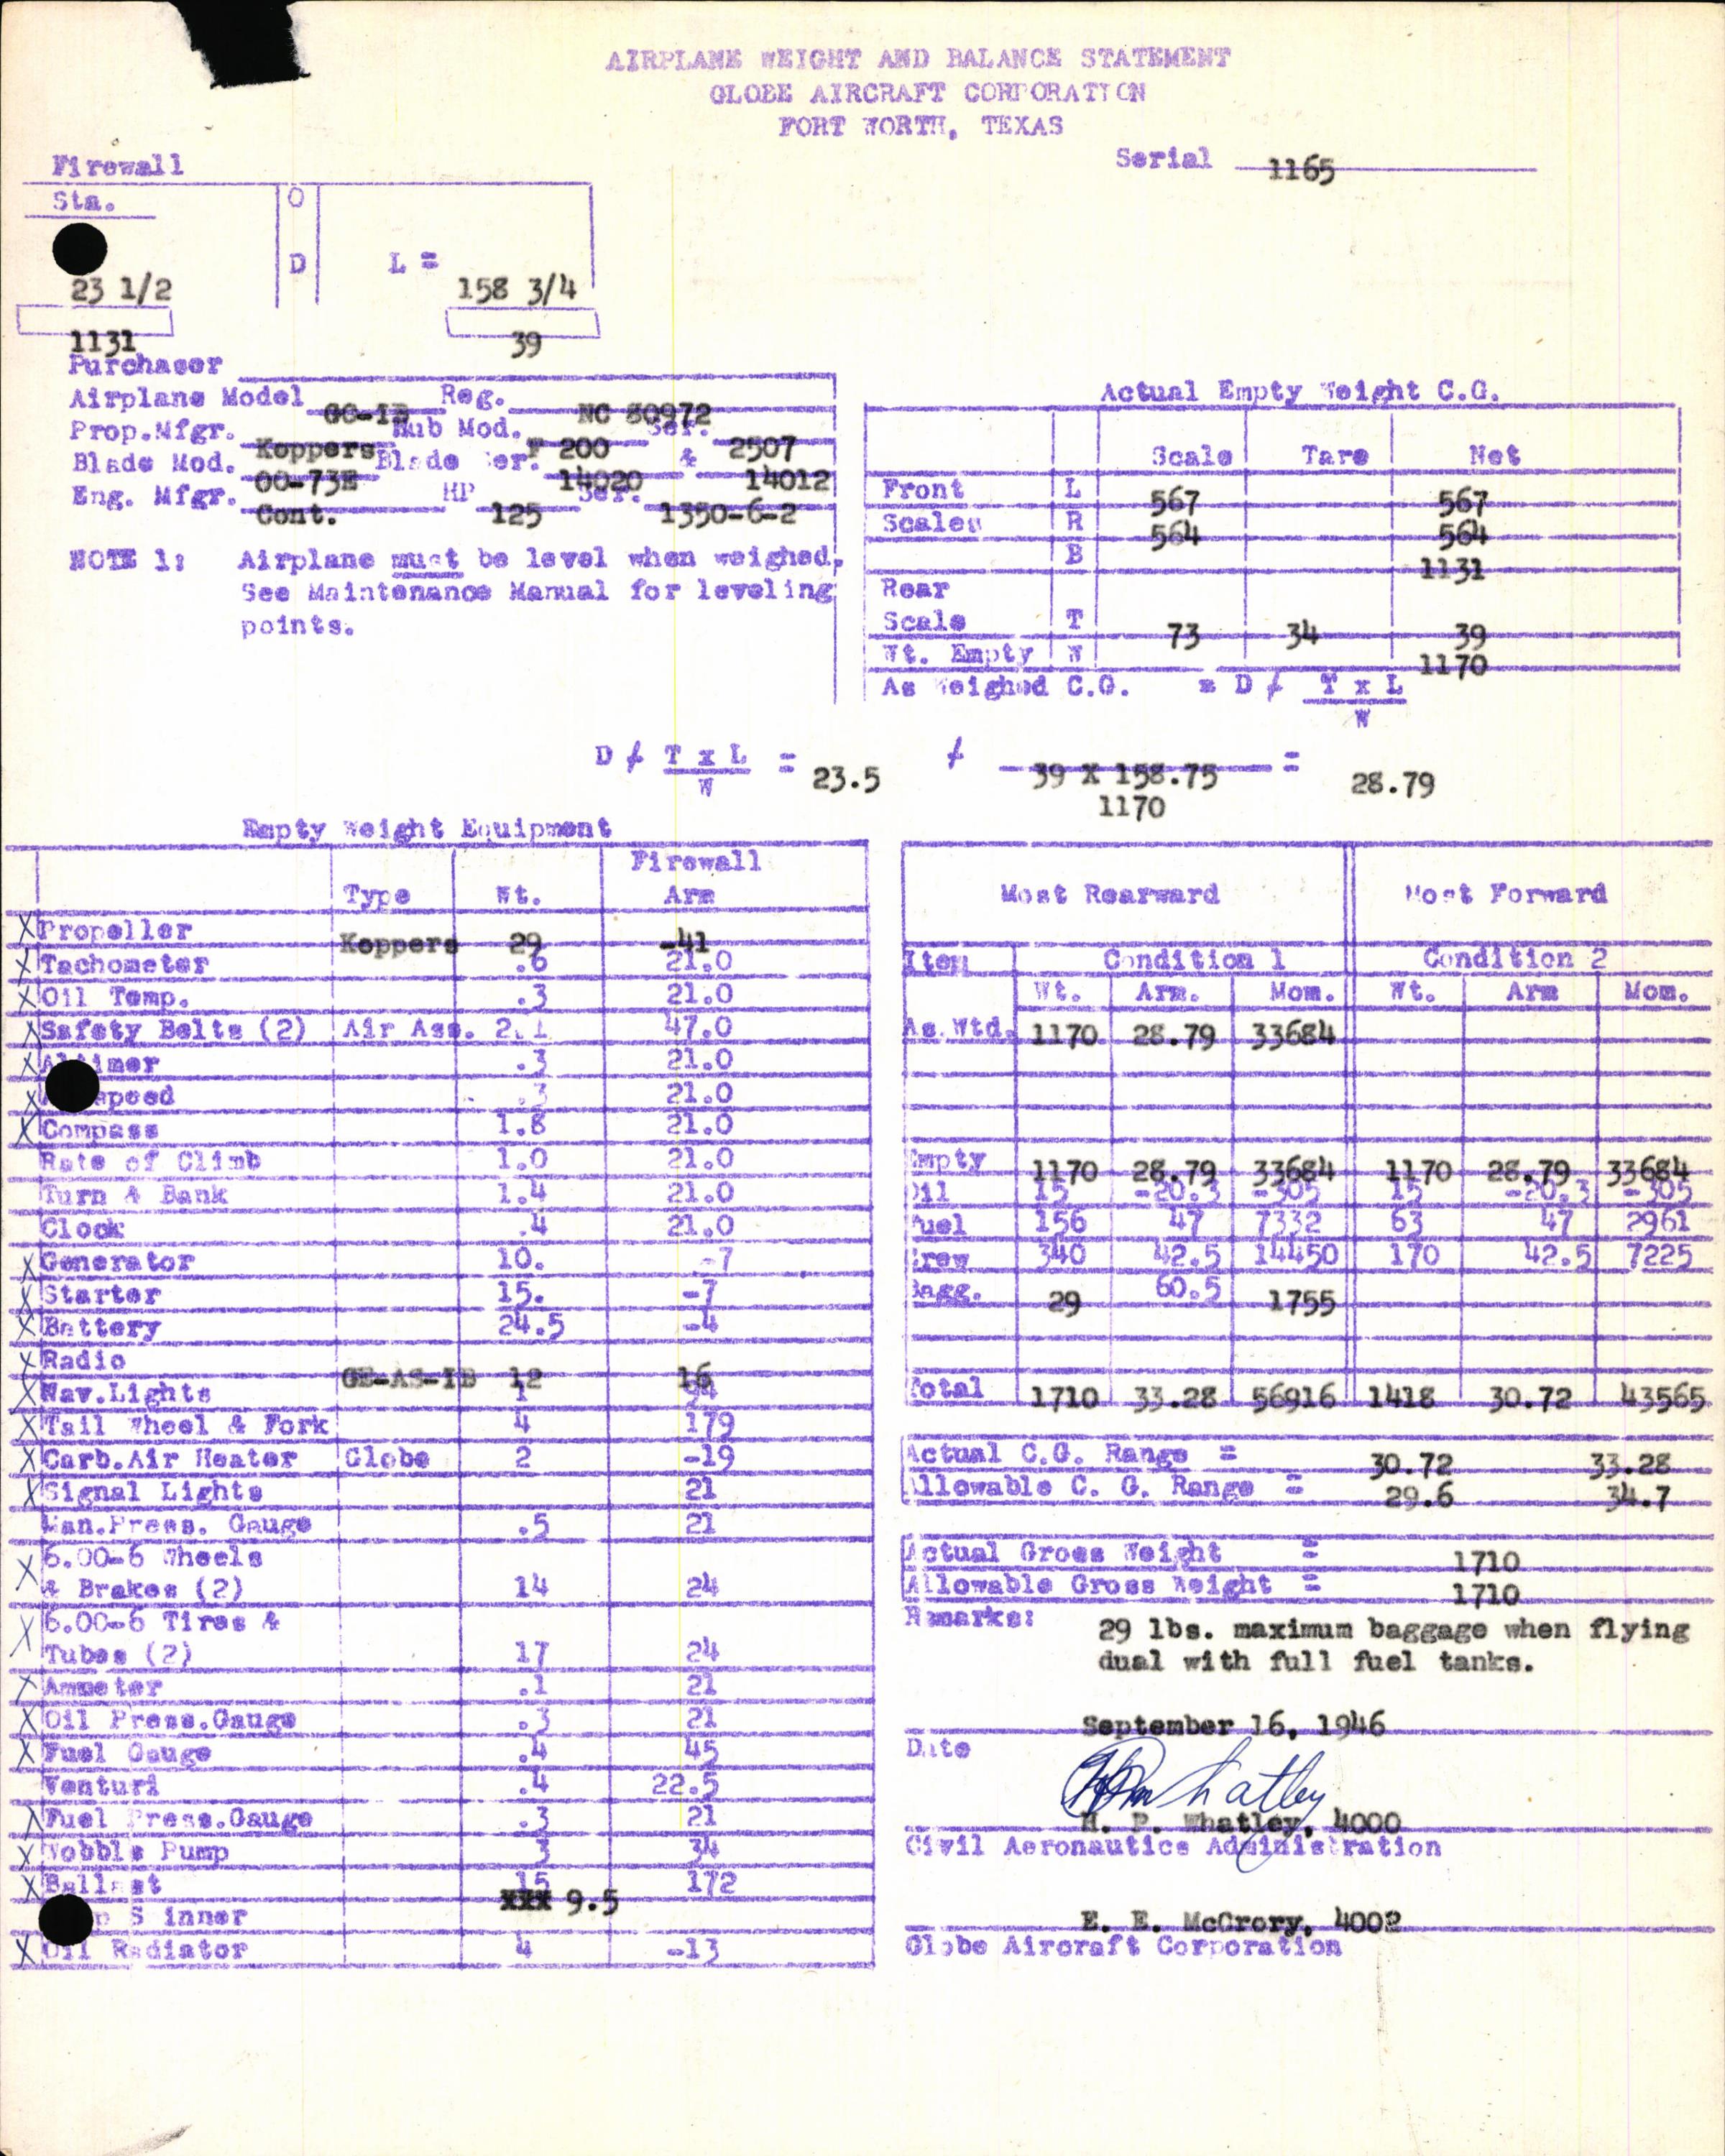 AIRPLANE WEIGHT AND BALANCE STATEMENT
GLOBE AIRCRAFT CORPORATION
FORT WORTH, TEXAS
Serial 1165
Firewall
Sta. O
D L =
23 1/2 158 3/4
1131 39
Purchaser
Airplane Model GC-1B Reg. NC 80972
Prop.Mfgr. Koppers Hub Mod. F 200 Ser. 2507
Blade Mod. 00-73E Blade Ser. 14020 & 14012
Eng. Mfgr. Cont. HP 125 Ser. 1350-6-2
NOTE 1: Airplane must be level when weighed.
See Maintenance Manual for leveling
points.
Actual Empty Weight C.G.
Scale Tare Net
Front L 567 567
Scales R 564 564
B 1131
Rear
Scale T 73 34 39
Wt. Empty W 1170
As Weighed C.G. = D ≠ T x L
W
D ≠ T x L = 23.5 ≠ 39 X 158.75 = 28.79
W 1170
Empty Weight Equipment
Firewall
Type Wt. Arm
X Propeller Koppers 29 -41
X Tachometer .6 21.0
X Oil Temp. .3 21.0
X Safety Belts (2) Air Ass. 2.1 47.0
X Altimer .3 21.0
X speed .3 21.0
X Compass 1.8 21.0
Rate of Climb 1.0 21.0
Turn & Bank 1.4 21.0
Clock .4 21.0
X Generator 10. -7
X Starter 15. -7
X Battery 24.5 -4
X Radio GE-AS-1B 12 16
X Nav.Lights 1
X Tail Wheel & Fork 4 179
X Carb.Air Heater Globe 2 -19
X Signal Lights 21
Man.Press. Gauge .5 21
X 6.00-6 Wheels
& Brakes (2) 14 24
X 6.00-6 Tires &
Tubes (2) 17 24
X Ammeter .1 21
X Oil Press.Gauge .3 21
X Fuel Gauge .4 45
Venturi .4 22.5
X Fuel Press.Gauge .3 21
X Wobble Pump 3 34
X Ballast 15 172
xxx 9.5
p S inner
X Oil Radiator 4 -13
Most Rearward Most Forward
Item Condition 1 Condition 2
Wt. Arm. Mom. Wt. Arm Mom.
As Wtd. 1170 28.79 33684
Empty 1170 28.79 33684 1170 28.79 33684
Oil 15 -20.3 -305 15 -20.3 -305
Fuel 156 47 7332 63 47 2961
Crew 340 42.5 14450 170 42.5 7225
Bagg. 29 60.5 1755
Total 1710 33.28 56916 1418 30.72 43565
Actual C.G. Range = 30.72 33.28
Allowable C. G. Range = 29.6 34.7
Actual Gross Weight = 1710
Allowable Gross Weight = 1710
Remarks: 29 lbs. maximum baggage when flying
dual with full fuel tanks.
September 16, 1946
Date
H P Whatley
H. P. Whatley, 4000
Civil Aeronautics Administration
E. E. McCrory, 4002
Globe Aircraft Corporation